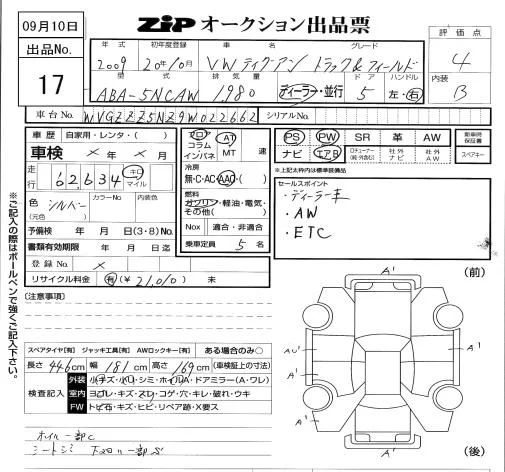 09月10日
ZIP オークション出品票
出品No.
17
年式 初年度登録 車名 グレード
2009 20年10月 VW ティグアン トラック&フィールド
型式 排気量 ドア ハンドル
ABA-5NCAW 1,980 ディーラー・並行 5 左・右
評価点
4
内装
B
車台No. WVGZZZ5NZ9W022662 シリアルNo.
車歴 自家用・レンタ・( )
車検 × 年 × 月
走行 62,634 キロ マイル
色 シルバー カラーNo 内装色
(元色)
予備検 年 月 日(3・8)No.
書類有効期限 年 月 日迄
登録No. ×
リサイクル料金 有(¥ 21,010 ) 未
フロア コラム インパネ AT MT 速
冷房
無・C・AC・AAC・( )
燃料
ガソリン・軽油・電気・その他( )
Nox 適合・非適合
乗車定員 5 名
PS PW SR 革 AW
ナビ エアB 社外ナビ 社外AW
保証書
スペアキー
*上記太枠内は標準装備品
セールスポイント
・ディーラー車
・AW
・ETC
※ご記入の際はボールペンで強くご記入下さい。
[注意事項]
スペアタイヤ[有] ジャッキ工具[有] AWロックキー[有] ある場合のみ○
長さ 446cm 幅 181cm 高さ 169cm (車検証上の寸法)
検査記入
外装 小キズ・小凹・シミ・ホイルA・ドアミラー(A・ワレ)
室内 ヨゴレ・キズ・スレ・コゲ・穴・キレ・破れ・ウキ
FW トビ石・キズ・ヒビ・リペア跡・X要ス
ホイル一部C
シートシミ
(前)
A'
A'
A'
A'
A'
A'
(後)